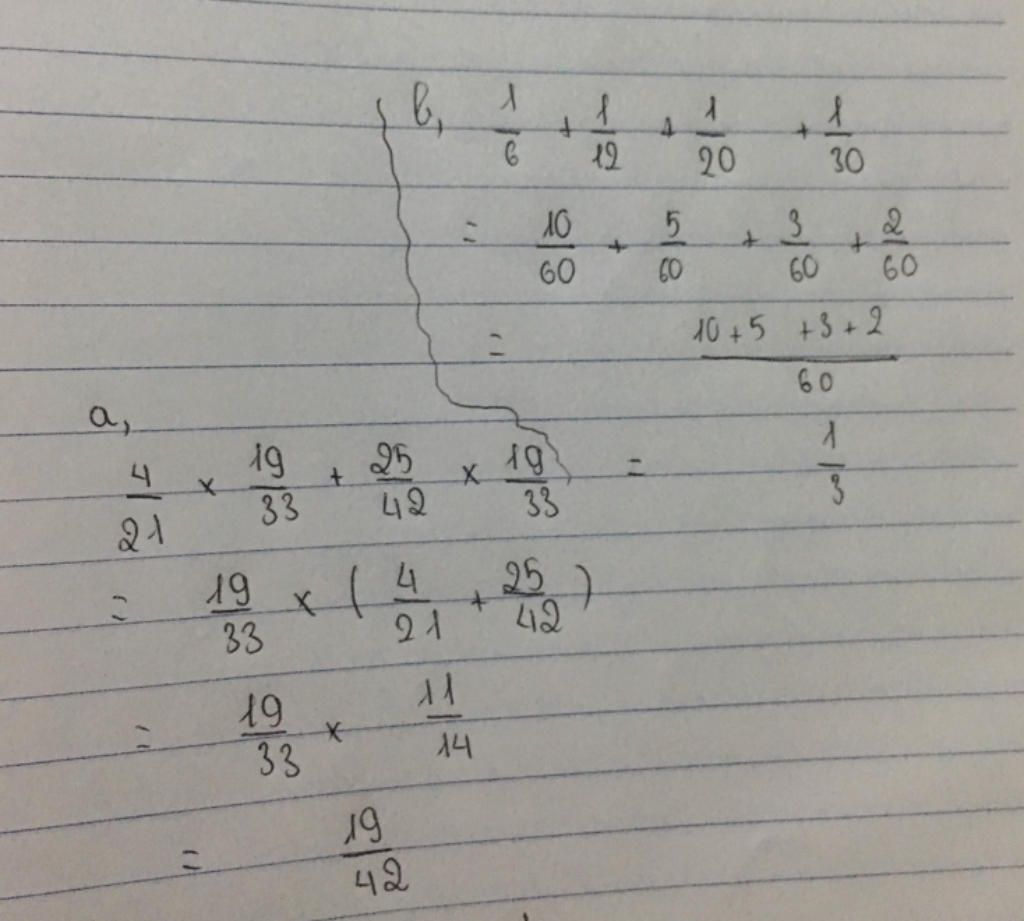 b, 1/6 + 1/12 + 1/20 + 1/30
= 10/60 + 5/60 + 3/60 + 2/60
= (10+5 +3+2)/60
= 1/3
a,
4/21 × 19/33 + 25/42 × 19/33
= 19/33 × ( 4/21 + 25/42 )
= 19/33 × 11/14
= 19/42